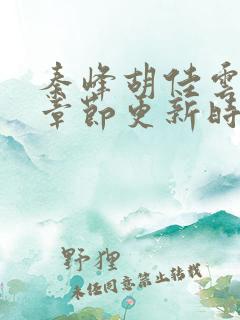 秦峰胡佳雲
章節更新時
野狸
未经同意禁止转载